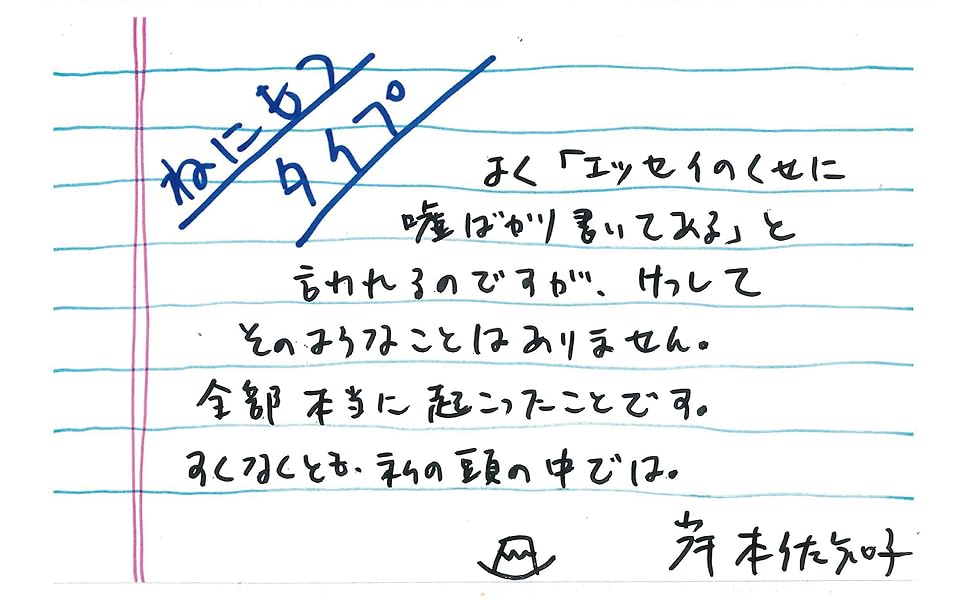 ねにもつ
タイプ
よく「エッセイのくせに
嘘ばかり書いてある」と
言われるのですが、けっして
そのようなことはありません。
全部本当に起こったことです。
すくなくとも、私の頭の中では。
岸本佐知子